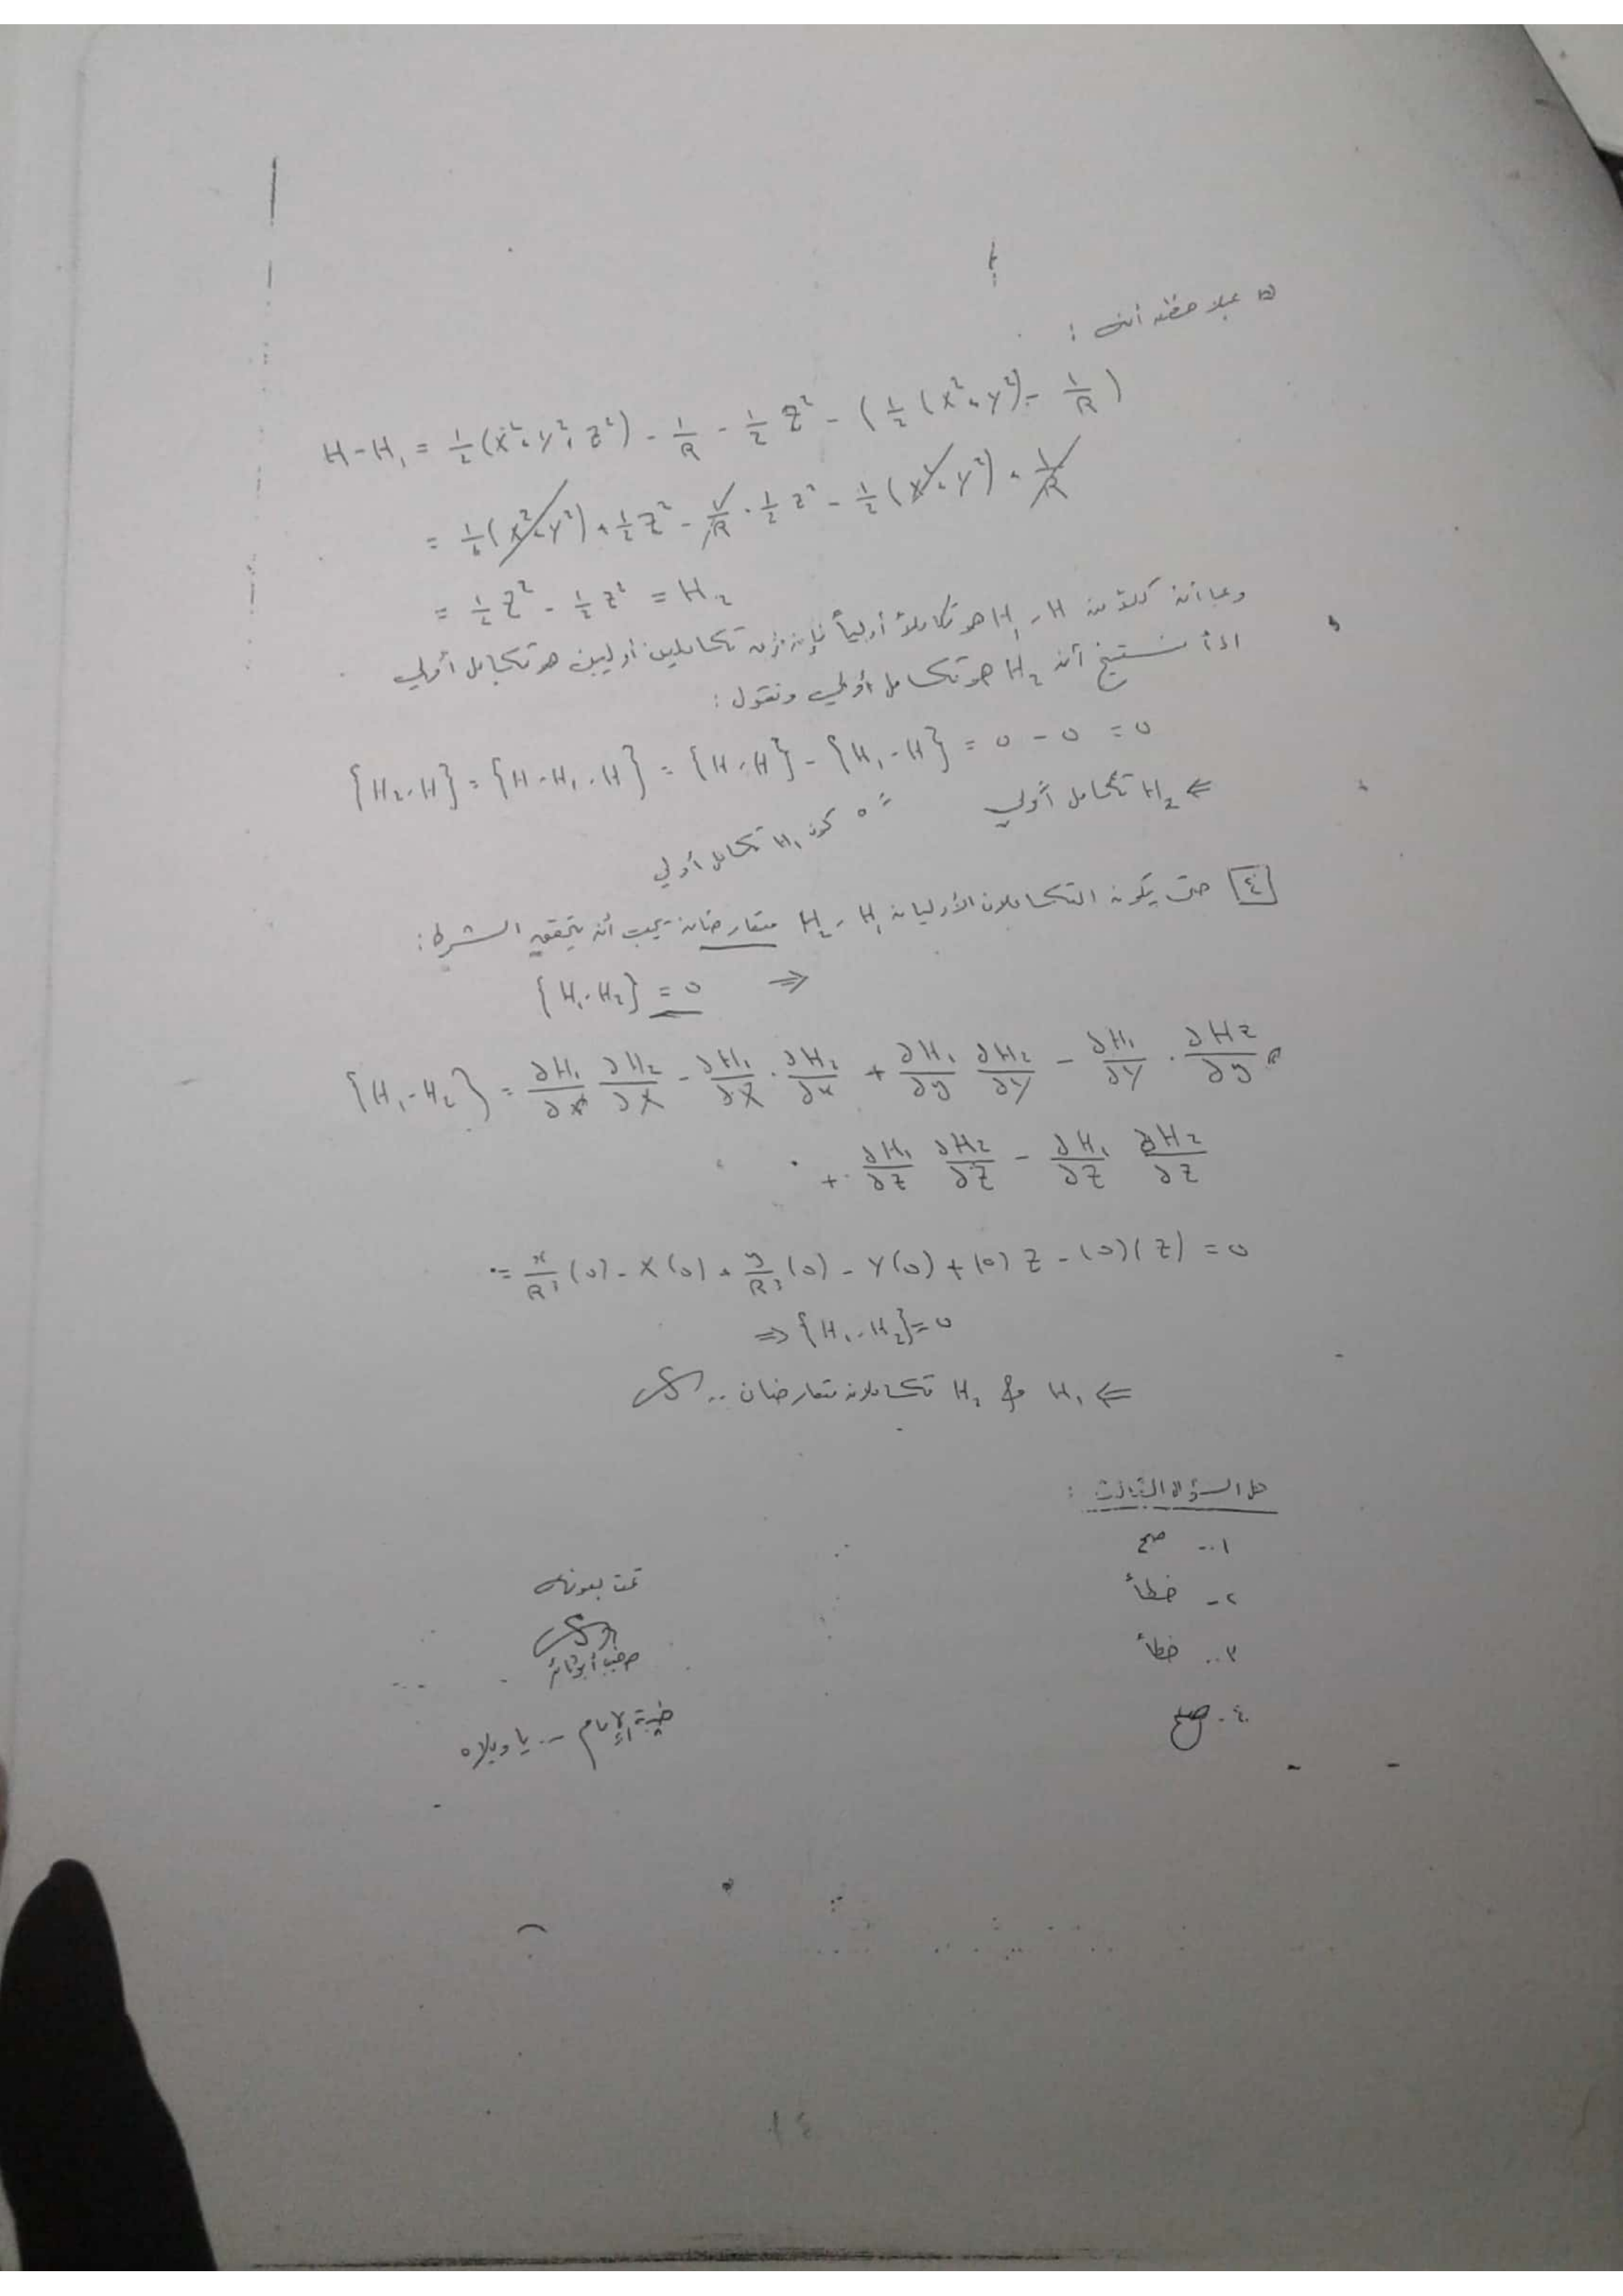 بملاحظة أن :
H - H₁ = 1/2 (X² + Y² + Z²) - 1/R - 1/2 z² - (1/2 (X² + Y²) - 1/R)
= 1/2 (X² + Y²) + 1/2 Z² - 1/R - 1/2 z² - 1/2 (X² + Y²) + 1/R
= 1/2 Z² - 1/2 z² = H₂
وبما أن كلاً من H ، H₁ هو تكاملاً أولياً فإن فرق تكاملين أوليين هو تكامل أولي
اذاً نستنتج أن H₂ هو تكامل أولي ونقول :
{H₂ , H} = {H - H₁ , H} = {H , H} - {H₁ , H} = 0 - 0 = 0
⇐ H₂ تكامل أولي
= 0 كون H₁ تكامل أولي
[٤] حتى يكون التكاملان الأوليان H₁ ، H₂ متعارضان يجب أن يتحقق الشرط :
{H₁ , H₂} = 0 ⇒
{H₁ , H₂} = ∂H₁/∂x ∂H₂/∂X - ∂H₁/∂X · ∂H₂/∂x + ∂H₁/∂y ∂H₂/∂Y - ∂H₁/∂Y · ∂H₂/∂y
+ ∂H₁/∂z ∂H₂/∂Z - ∂H₁/∂Z ∂H₂/∂z
= x/R³ (0) - X (0) + y/R³ (0) - Y (0) + (0) Z - (0) (z) = 0
⇒ {H₁ , H₂} = 0
⇐ H₁ و H₂ تكاملان متعارضان ..
حل السؤال الثالث :
١- صح
٢- خطأ
٣- خطأ
٤- صح
تمت بعونه
طيبة الإمام -- يا ويلاه
١٤